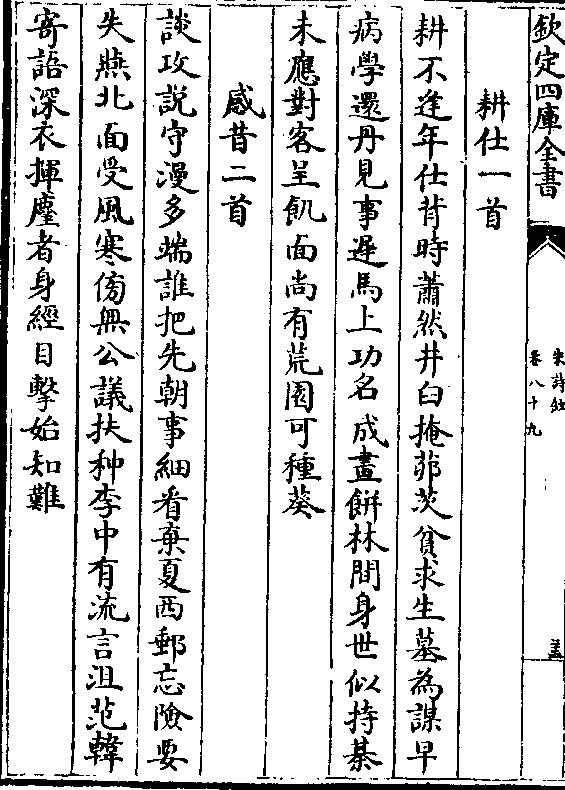 欽定四庫全書
宋詩鈔
卷八十九
耕仕一首
耕不逢年仕背時蕭然井臼掩茆茨貧求生墓為謀早
病學還丹見事遲馬上功名成畫餅林間身世似持棊
未應對客呈飢面尚有荒園可種葵
感昔二首
談攻説守漫多端誰把先朝事細看棄夏西郵忘險要
失燕北面受風寒傍無公議扶种李中有流言沮范韓
寄語深衣揮麈者身經目擊始知難